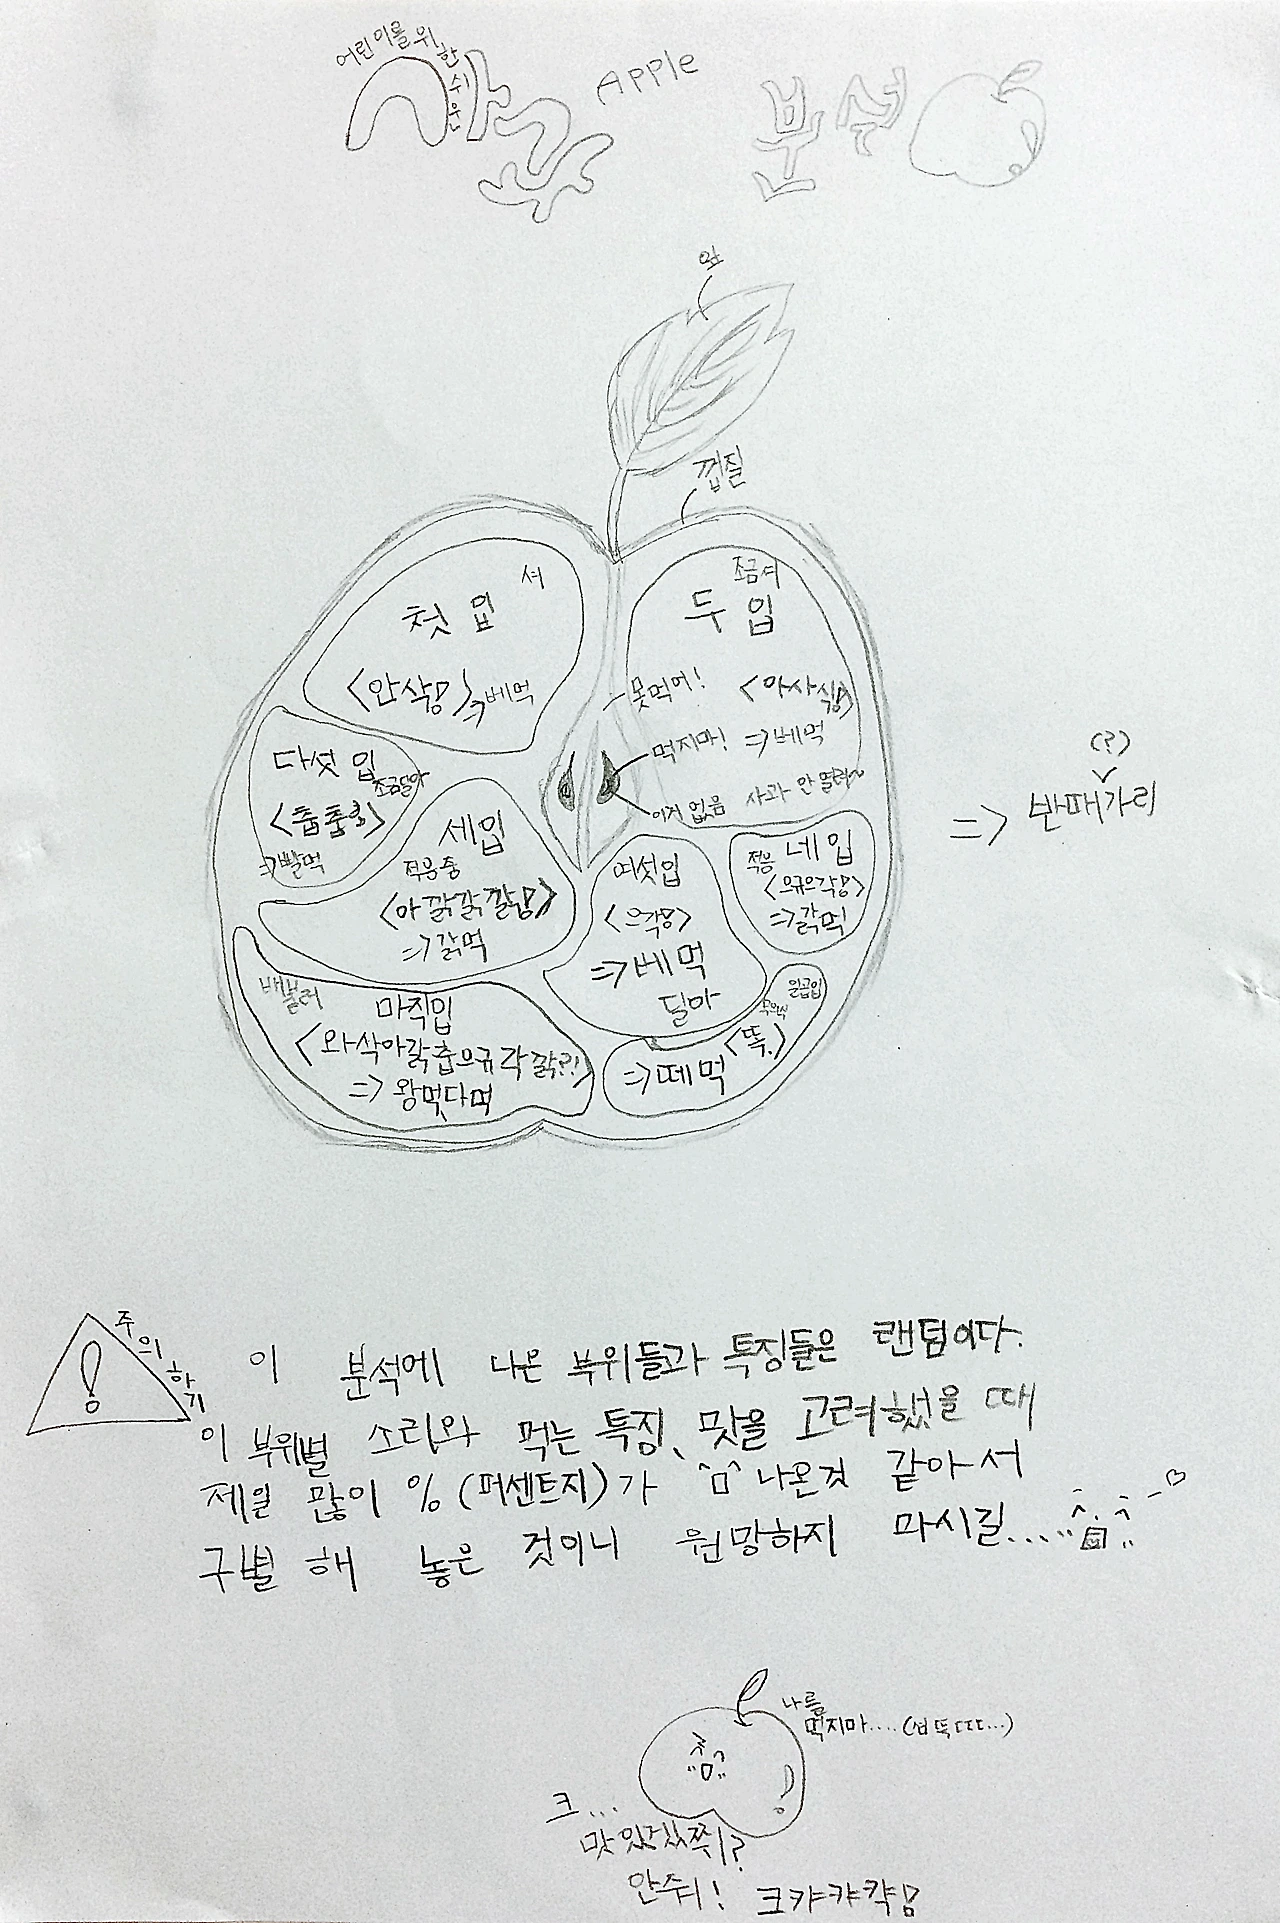 어린이를 위한 쉬운
사과 Apple 분석
잎
껍질
셔
첫 입
<안삭>
=>베먹
조금셔
두 입
<아사식>
=>베먹
사과 안 떨려~
못먹어!
먹지마!
이거 없음
다섯 입
조금달아
=>빨먹
세입
적응중
=>갉먹
네입
적응
=>갉먹
여섯입
=>베먹
달아
배불러
마직입
=>왕먹다먹
일곱입
<뚝.>
=>떼먹
(?)
=> 반때가리
주의하기
!
이 분석에 나온 부위들과 특징들은 랜덤이다.
이 부위별 소리와 먹는 특징, 맛을 고려했을 때
제일 많이 %(퍼센트지)가 ^ㅁ^ 나온것 같아서
구별 해 놓은 것이니 원망하지 마시길....
나를
먹지마....
크...
맛있겠쮜?
안줘!